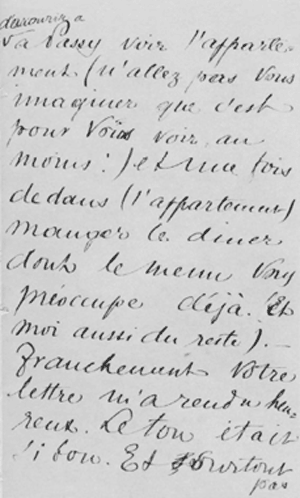 à Passy voir l'apparte-
ment (n'allez pas vous
imaginer que c'est
pour vous voir, au
moins!) et une fois
dedans (l'appartement)
manger le diner
dont le menu vous
préoccupe déjà. (Et
moi aussi du reste). —
Franchement votre
lettre m'a rendu heu-
reux. Le ton était
si bon. Et surtout
pas